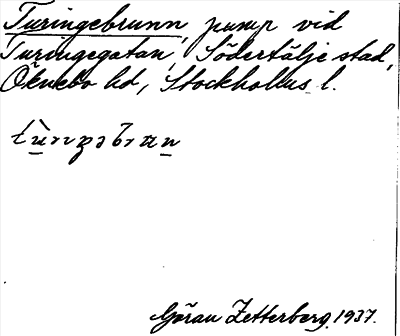 Turingebrunn, pump vid
Turingegatan, Södertälje stad,
Öknebo hd, Stockholms l.
Göran Zetterberg. 1937.